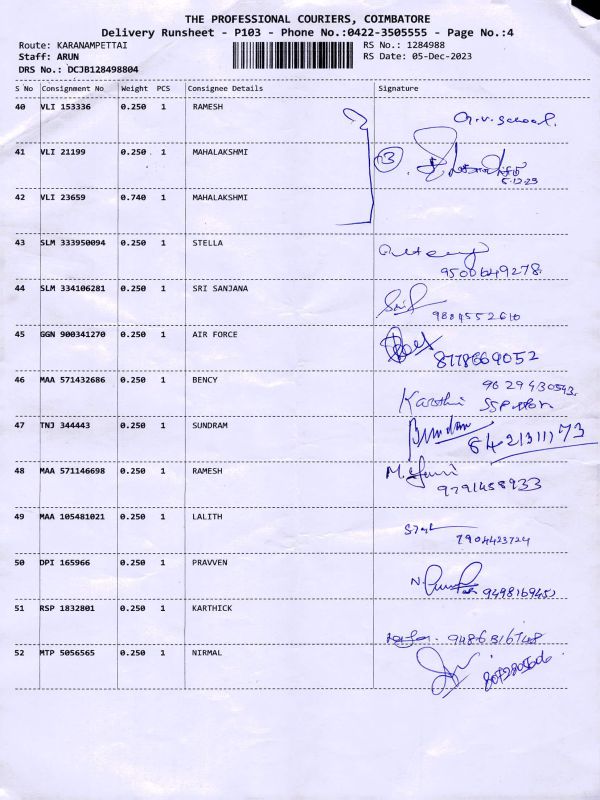 THE PROFESSIONAL COURIERS, COIMBATORE
Delivery Runsheet - P103 - Phone No.:0422-3505555 - Page No.:4
Route: KARANAMPETTAI RS No.: 1284988
Staff: ARUN RS Date: 05-Dec-2023
DRS No.: DCJB128498804
S No Consignment No Weight PCS Consignee Details Signature
40 VLI 153336 0.250 1 RAMESH school.
41 VLI 21199 0.250 1 MAHALAKSHMI 3
5-12-23
42 VLI 23659 0.740 1 MAHALAKSHMI
43 SLM 333950094 0.250 1 STELLA
9500649278
44 SLM 334106281 0.250 1 SRI SANJANA
9884552610
45 GGN 900341270 0.250 1 AIR FORCE
8778669052
46 MAA 571432686 0.250 1 BENCY 9629430543
Karthi
47 TNJ 344443 0.250 1 SUNDRAM
8421311173
48 MAA 571146698 0.250 1 RAMESH
9791458933
49 MAA 105481021 0.250 1 LALITH
7904423724
50 DPI 165966 0.250 1 PRAVVEN
9498169451
51 RSP 1832801 0.250 1 KARTHICK
9486316748
52 MTP 5056565 0.250 1 NIRMAL